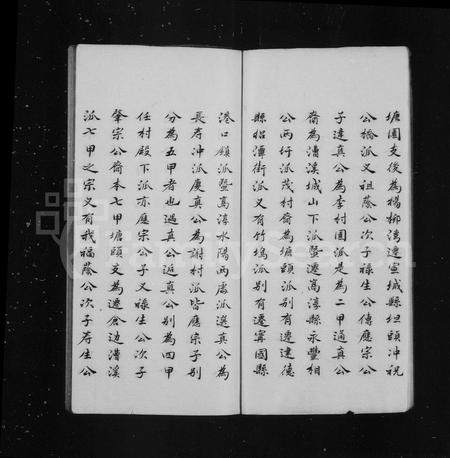 塘園支後為楊柳溝遷宣城縣坦頭冲祝
公橋派又祖蔭公次子祿生公傳應宗公
子逹真公為李村園派是為二甲通真公
裔為漕溪城山下派暨遷髙淳縣永豐相
公兩圩派茂村裔為塘頭派别有遷建德
縣梠潭街派又有竹塢派别有遷寗國縣
港口鎮派暨髙淳水陽兩處派選真公為
長寿冲派慶真公為謝村派皆應宗子别
分為五甲者也過真公返真公别為四甲
任村殿下派亦應宗公子又祿生公次子
肇宗公裔本七甲塘頭支為遷倉边漕溪
派七甲之宗又有我福蔭公次子寿生公
FamilySearch